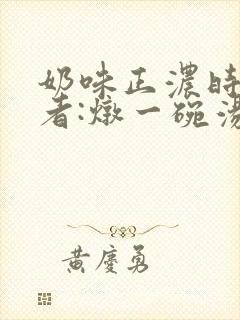 奶味正濃時
者:燉一碗湯
黃慶勇